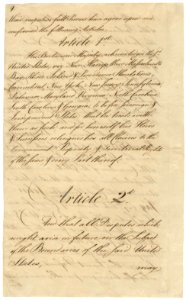 their respective full Powers have agreed upon and
confirmed the following Articles.
Article 1st
His Britannic Majesty acknowledges the sd.
United States, viz. New Hampshire, Massachusetts
Bay, Rhode Island & Providence Plantations,
Connecticut, New York, New Jersey, Pennsylvania
Delaware, Maryland, Virginia, North Carolina,
South Carolina & Georgia, to be free sovereign &
Independent States; that he treats with
them as such, and for himself, his Heirs
& Successors, relinquishes all Claims to the
Government, Propriety & Territorial Rights
of the same & every Part thereof.
Article 2d
And that all Disputes which
might arise in future on the Subject
of the Boundaries of the said United
States,
may